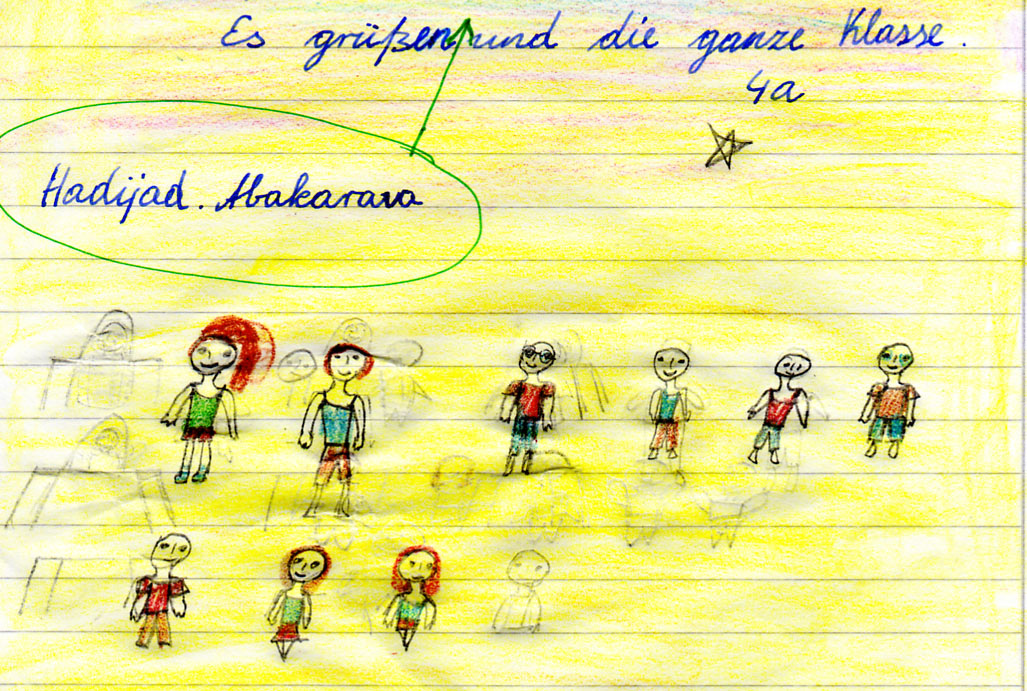 Es grüßen und die ganze Klasse.
4a
Hadijad. Abakarava